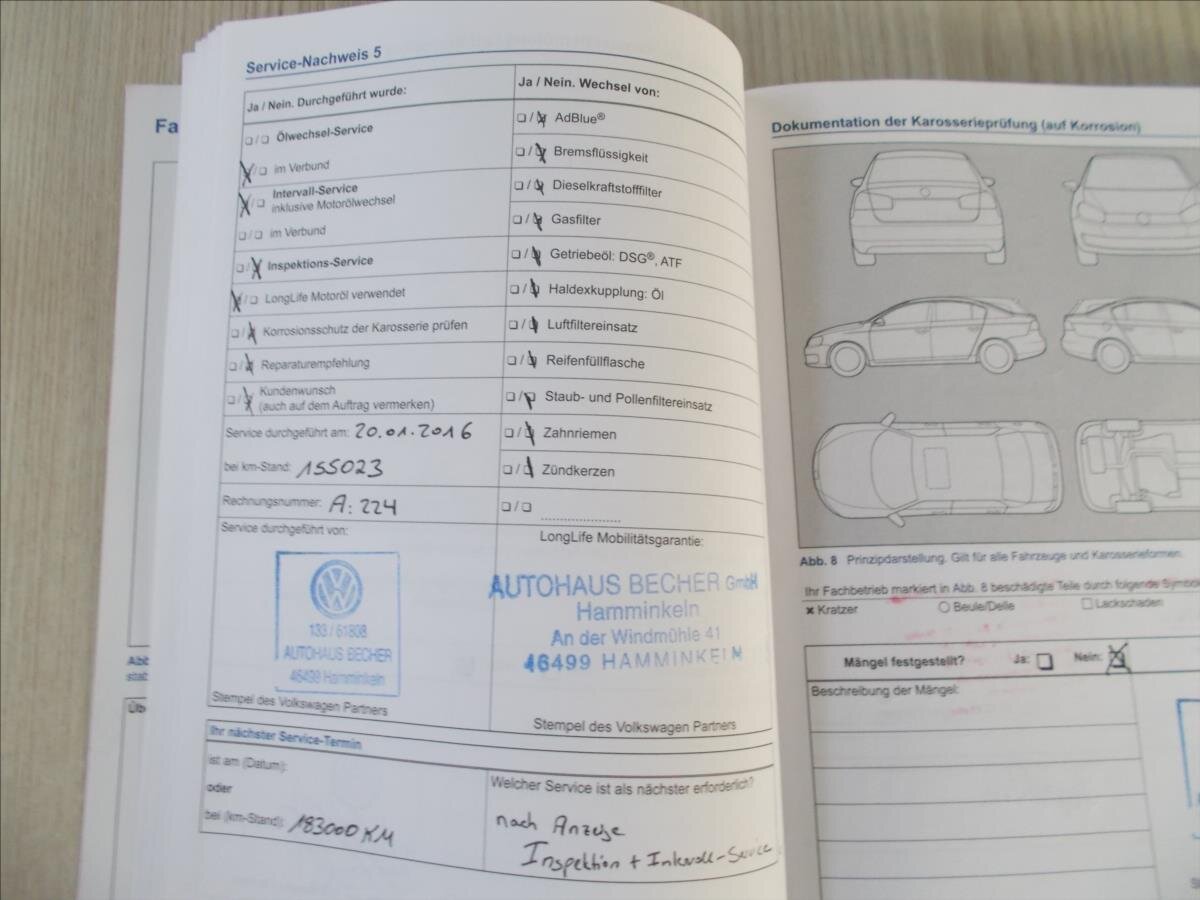 Service-Nachweis 5
Ja / Nein. Durchgeführt wurde:
❏ / ❏ Ölwechsel-Service
❏ / ❏ im Verbund
❏ / ❏ Intervall-Service
inklusive Motorölwechsel
❏ / ❏ im Verbund
❏ / ❏ Inspektions-Service
❏ / ❏ LongLife Motoröl verwendet
❏ / ❏ Korrosionsschutz der Karosserie prüfen
❏ / ❏ Reparaturempfehlung
❏ / ❏ Kundenwunsch
(auch auf dem Auftrag vermerken)
Service durchgeführt am: 20.01.2016
bei km-Stand: 155023
Rechnungsnummer: A: 224
Service durchgeführt von:
133 / 61808
AUTOHAUS BECHER
46499 Hamminkeln
Stempel des Volkswagen Partners
Ja / Nein. Wechsel von:
❏ / ❏ AdBlue®
❏ / ❏ Bremsflüssigkeit
❏ / ❏ Dieselkraftstofffilter
❏ / ❏ Gasfilter
❏ / ❏ Getriebeöl: DSG®, ATF
❏ / ❏ Haldexkupplung: Öl
❏ / ❏ Luftfiltereinsatz
❏ / ❏ Reifenfüllflasche
❏ / ❏ Staub- und Pollenfiltereinsatz
❏ / ❏ Zahnriemen
❏ / ❏ Zündkerzen
❏ / ❏
LongLife Mobilitätsgarantie:
AUTOHAUS BECHER GmbH
Hamminkeln
An der Windmühle 41
46499 HAMMINKELN
Stempel des Volkswagen Partners
Ihr nächster Service-Termin
ist am (Datum):
oder
bei (km-Stand): 183000 KM
Welcher Service ist als nächster erforderlich?
nach Anzeige
Inspektion + Intervall-Service
Fa
Abb
stab
Üb
Dokumentation der Karosserieprüfung (auf Korrosion)
Abb. 8 Prinzipdarstellung. Gilt für alle Fahrzeuge und Karosserieformen.
Ihr Fachbetrieb markiert in Abb. 8 beschädigte Teile durch folgende Symbo
✖ Kratzer ○ Beule/Delle □ Lackschaden
Mängel festgestellt? Ja: ❏ Nein: ❏
Beschreibung der Mängel: